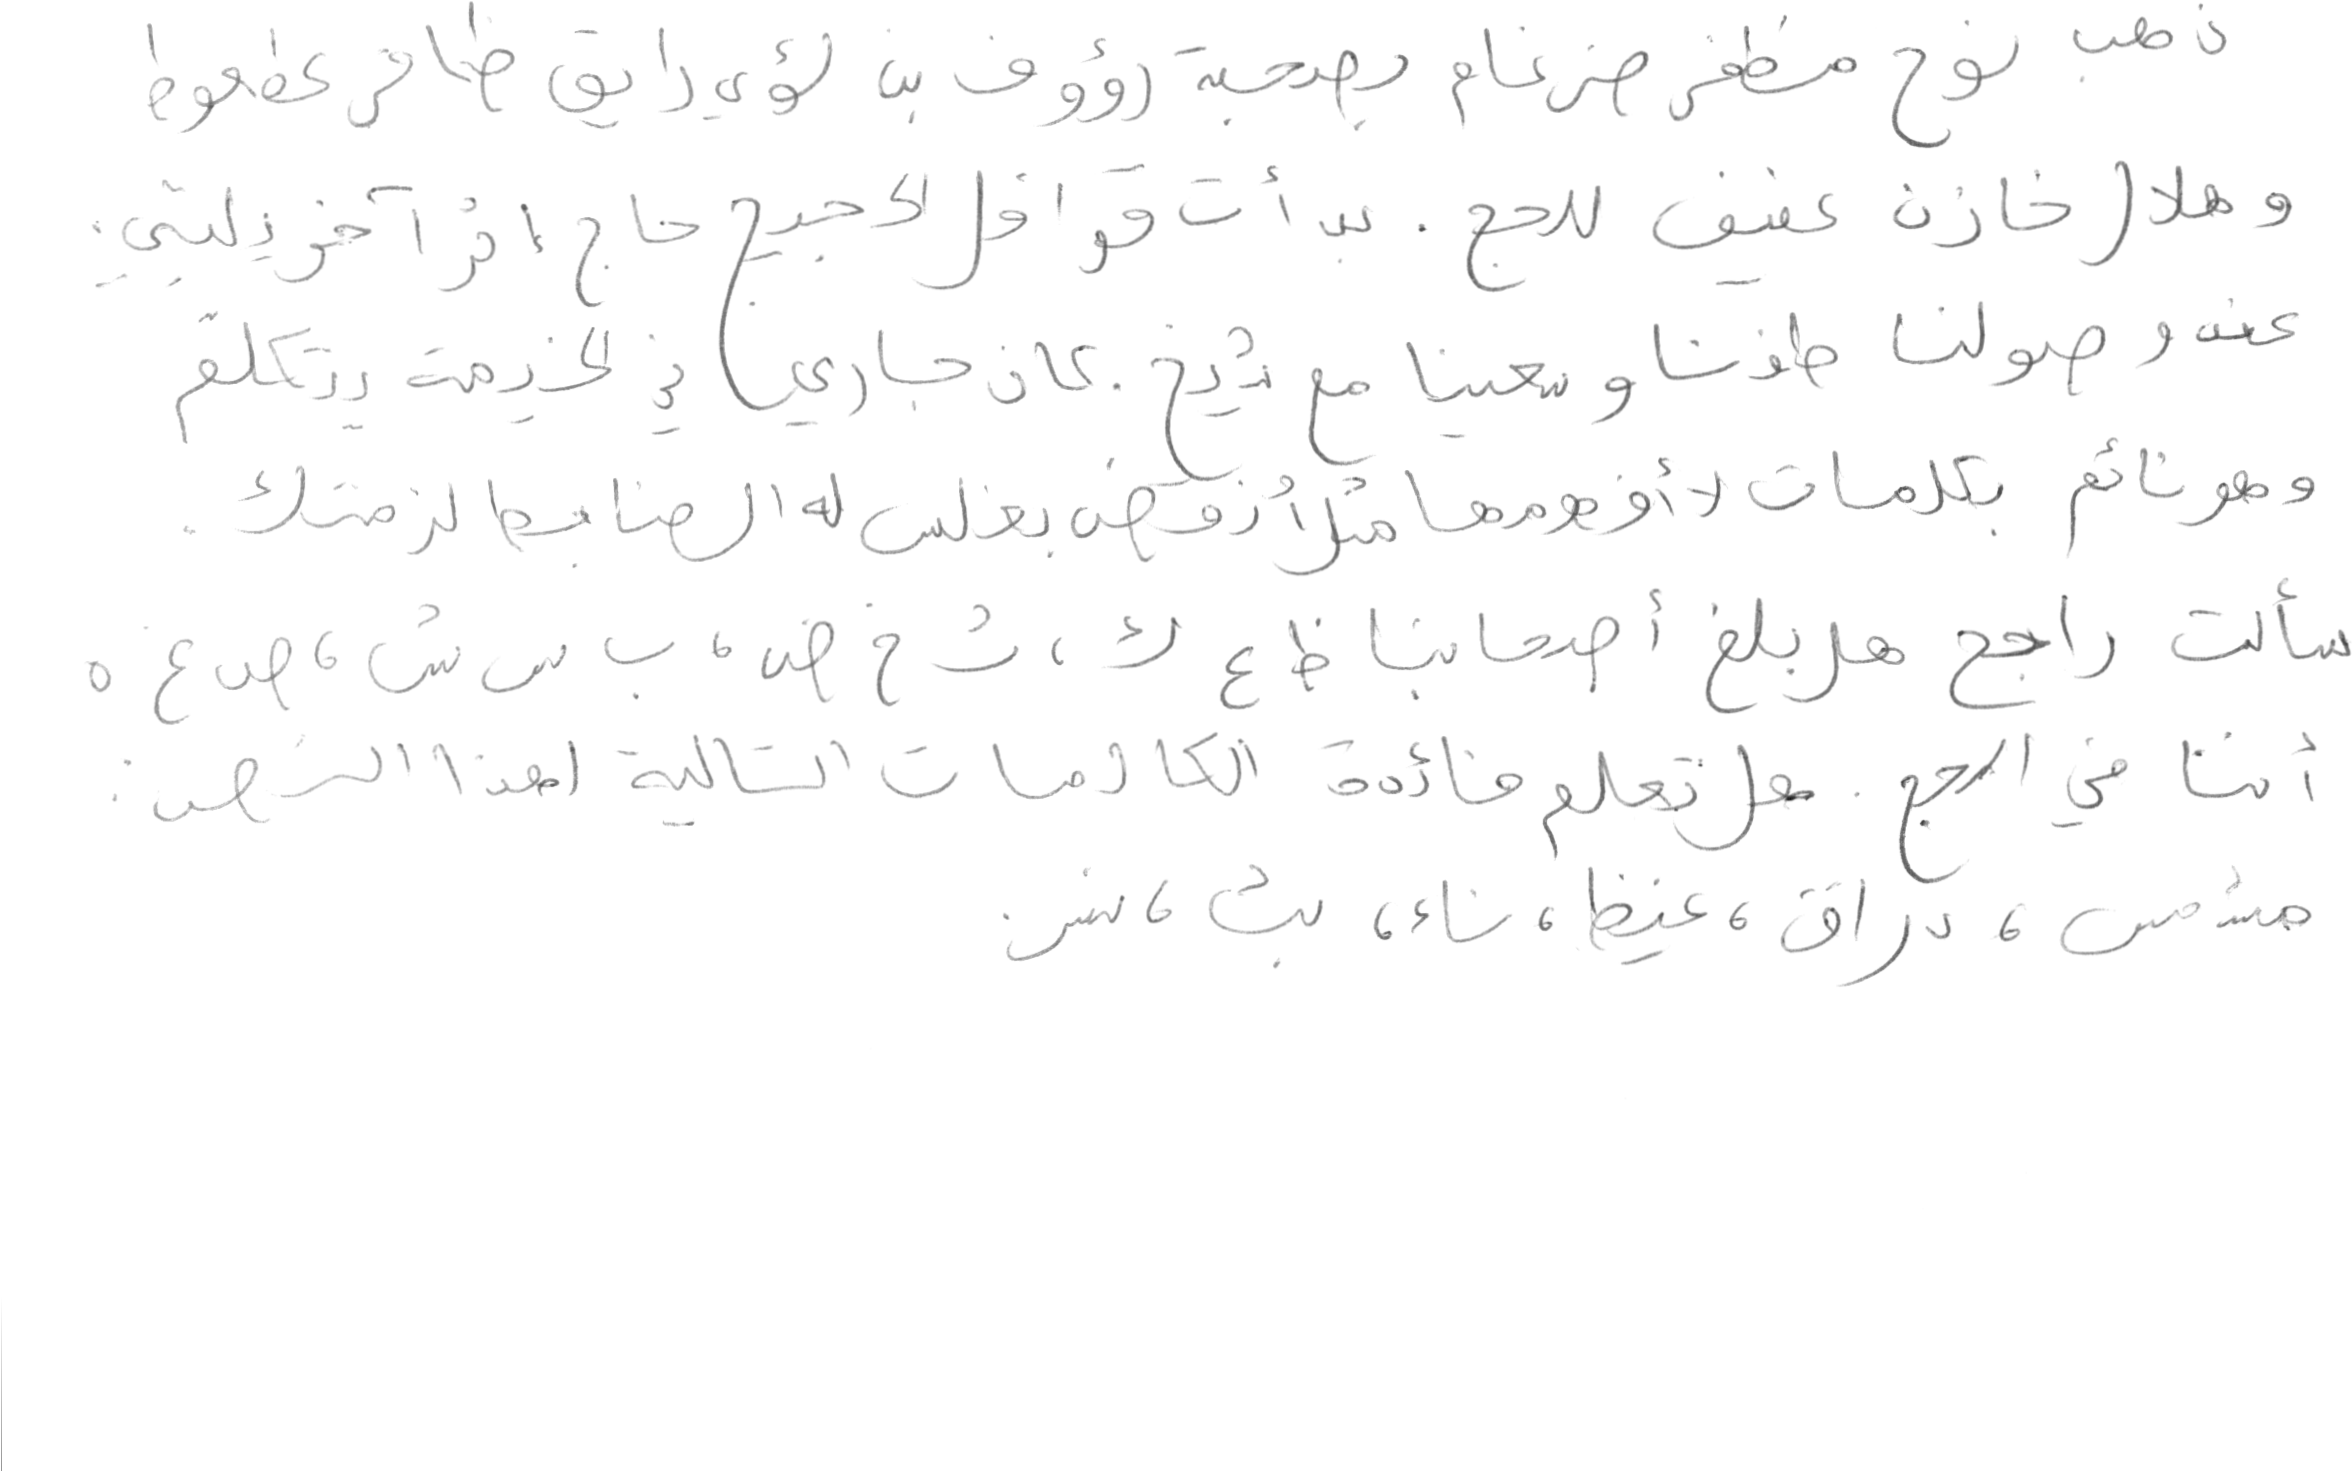 ذهب نوح مظفر ضرغام بصحبة رؤوف بن لؤي رايق ظافر عطعوط
وهلال خازن عفيف للحج . بدأت قوافل الحجيج حاج إثر آخر
عند وصولنا طفنا وسعينا مع شيخ . كان جاري في الخيمة يتكلم
وهو نائم بكلمات لا أفهمها مثل بغلس له الضابط لزمتك .
سألت راجح هل بلغ أصحابنا ظ ع ك ، ث خ ض ، ب س ش ، ص غ ه
أننا في الحج . هل تعلم فائدة الكالمات التالية لهذا النص :
مشمس ، دراق ، غيظ ، ناء ، بث ، سنر .